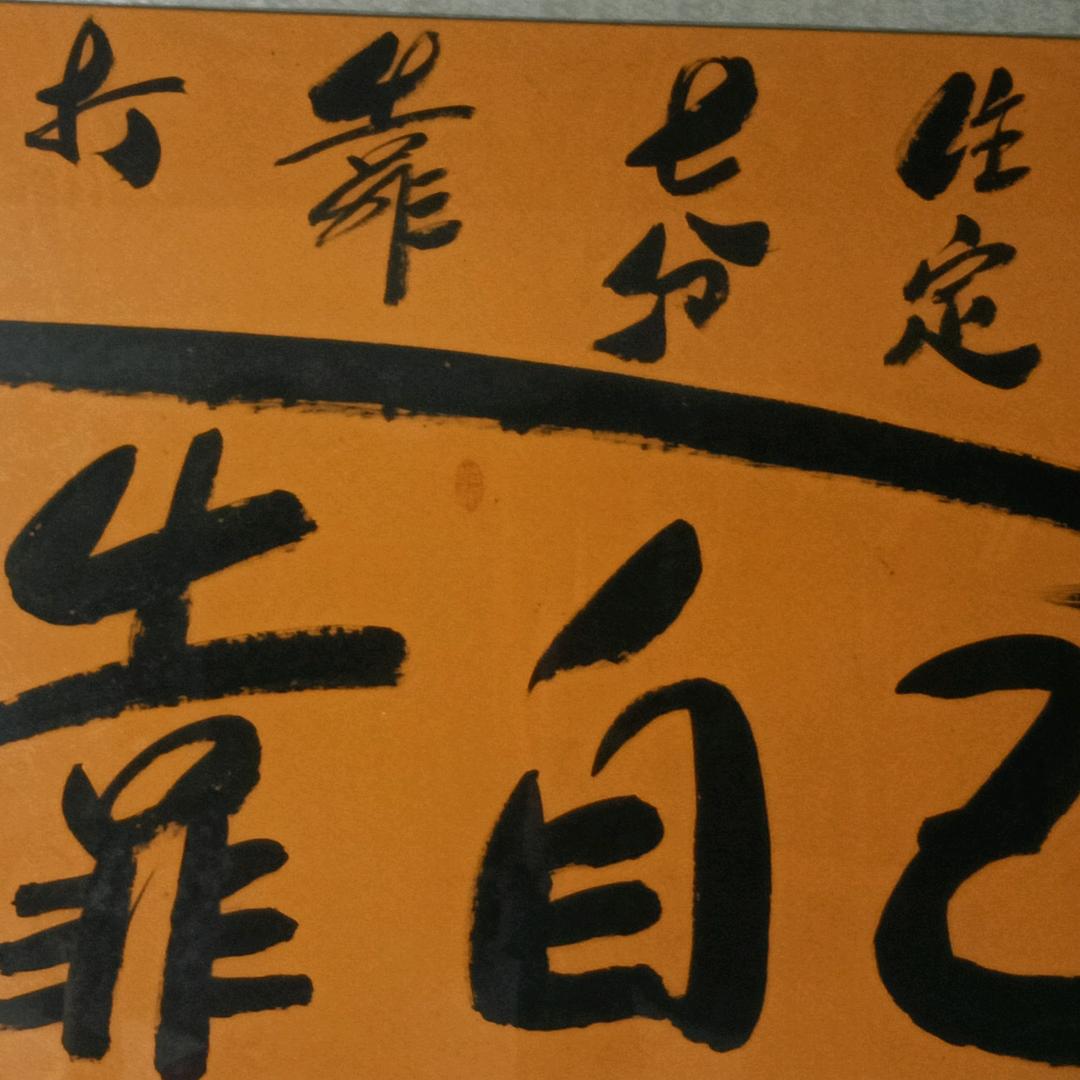 注定
七分
靠
打
靠自己